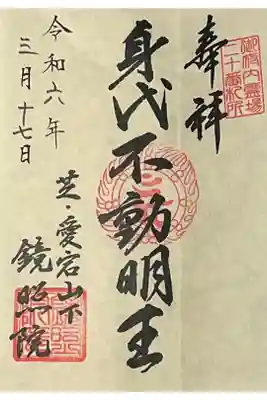 奉拝
御府内霊場
二十番札所
身代不動明王
芝・愛宕山下
鏡照院
令和六年
三月十七日